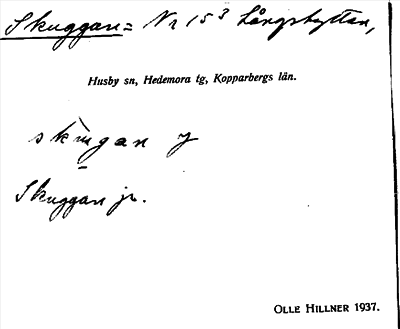 Skuggan = Nr 153 Långshyttan,
Husby sn, Hedemora tg, Kopparbergs län.
skugan y
Skuggan jr.
OLLE HILLNER 1937.